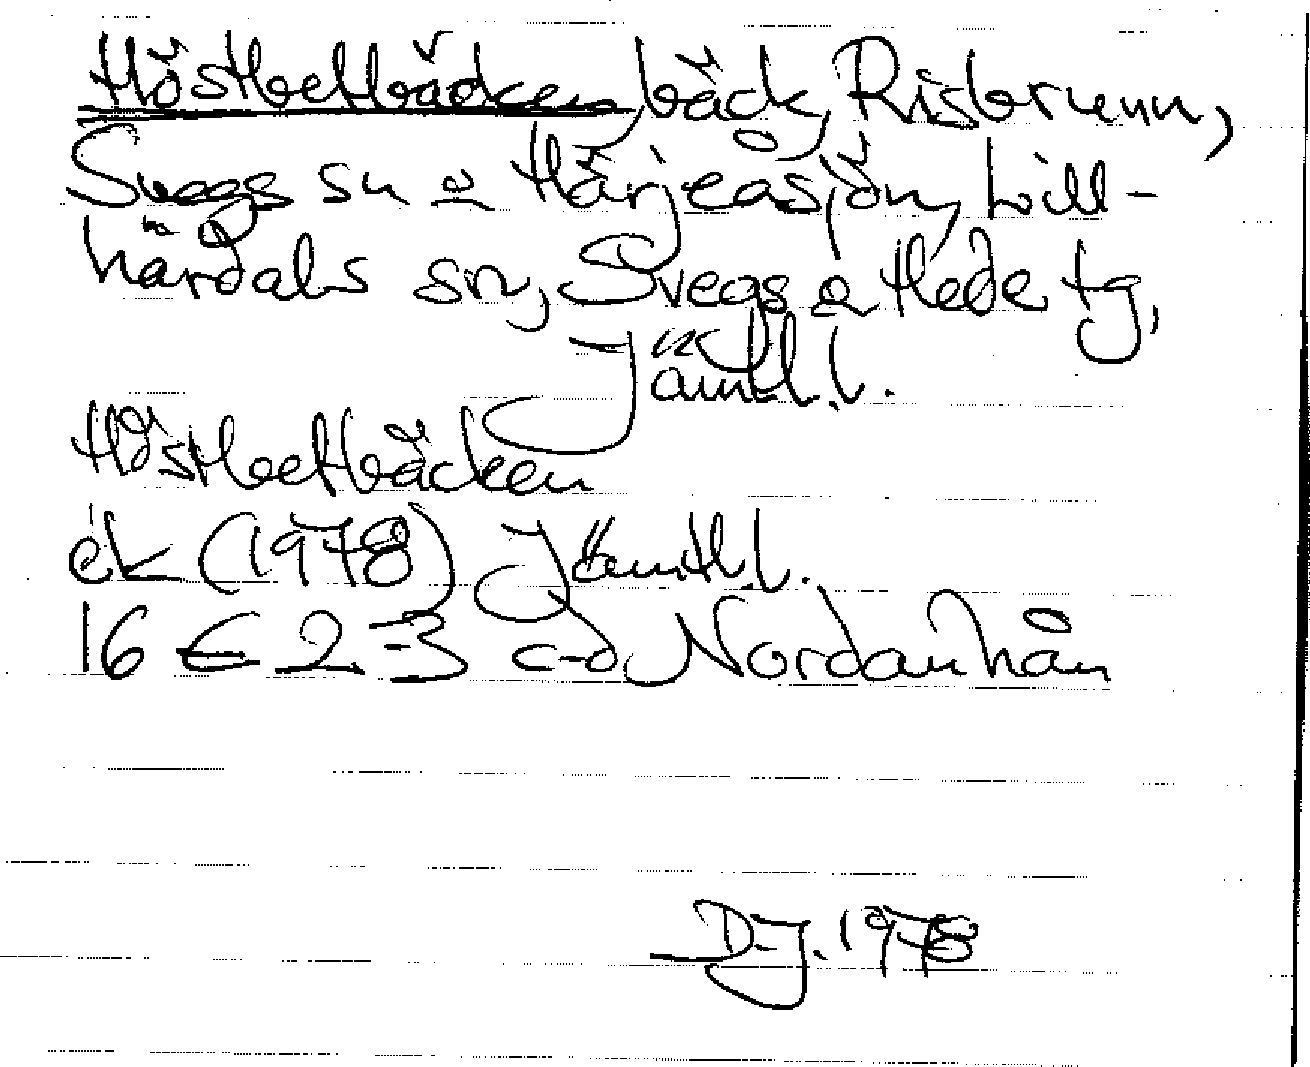 Höstbetbäcken, bäck, Risbrunn,
Svegs sn o Härjeåsjön, Lill-
härdals sn, Svegs o Hede tg,
Jämtl.l.
Höstbetbäcken
ek (1978) Jämtl.l.
16 E 2-3 c-d Nordanhån
D.J. 1978